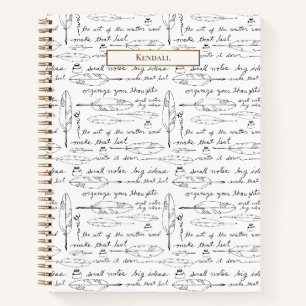 small notes big ideas
the art of the written word
make that list
KENDALL
organize your thoughts
small notes
the art of the written word
make that list
write it down
small notes big ideas
organize your thoughts
the art of the written word
make that list
write it down
small notes big ideas
organize your thoughts
the art of the written word
make that list
small notes big ideas